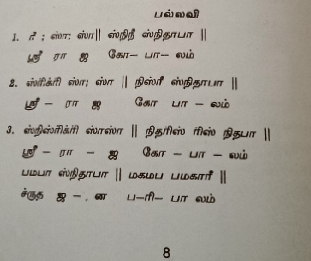 பல்லவி
1. ரீ ; ஸ்ா; ஸ்ா|| ஸ்நிநீ ஸ்நிதாபா ||
ஸ்ரீ ரா ஜ கோ– பா– லம்
2. ஸ்ரிக்ரி ஸ்ா; ஸ்ா || நிஸ்ரீ ஸ்நிதாபா ||
ஸ்ரீ – ரா ஜ கோ பா – லம்
3. ஸ்நிஸ்ரிக்ரி ஸாஸா || நிதரிஸ் ரிஸ் நிதபா ||
ஸ்ரீ – ரா – ஜ கோ – பா – லம்
பமபா ஸ்நிதாபா || மகமப பமகாரீ ||
ஜ –. ன ப–ரி– பா லம்
8